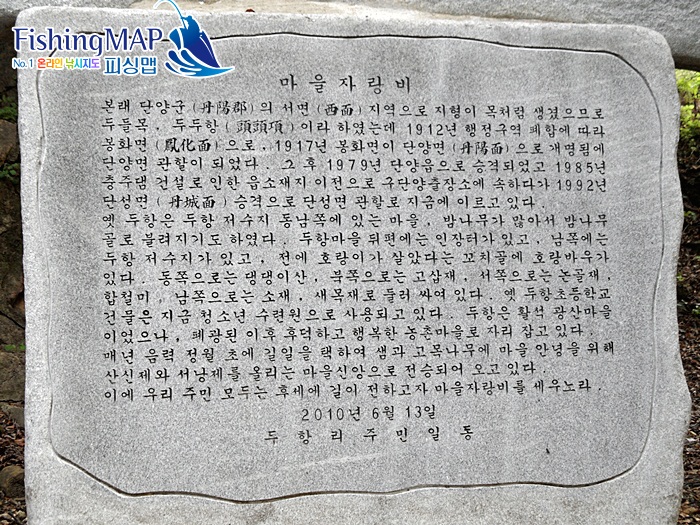 FishingMAP
No.1 온라인 낚시지도 피싱맵
마을자랑비
본래 단양군 (丹陽郡) 의 서면 (西面) 지역으로 지형이 목처럼 생겼으므로
두들목, 두두항 (頭頭項) 이라 하였는데 1912년 행정구역 폐합에 따라
봉화면 (鳳化面) 으로, 1917년 봉화면이 단양면 (丹陽面) 으로 개명됨에
단양면 관할이 되었다. 그 후 1979년 단양읍으로 승격되었고 1985년
충주댐 건설로 인한 읍소재지 이전으로 구단양출장소에 속하다가 1992년
단성면 (丹城面) 승격으로 단성면 관할로 지금에 이르고 있다.
옛 두항은 두항 저수지 동남쪽에 있는 마을, 밤나무가 많아서 밤나무
골로 불려지기도 하였다. 두항마을 뒤편에는 인장터가 있고, 남쪽에는
두항 저수지가 있고, 전에 호랑이가 살았다는 꼬치골에 호랑바우가
있다. 동쪽으로는 댕댕이산, 북쪽으로는 고삽재, 서쪽으로는 논골재,
함철미, 남쪽으로는 소재, 새목재로 둘러 싸여 있다. 옛 두항초등학교
건물은 지금 청소년 수련원으로 사용되고 있다. 두항은 활석 광산마을
이었으나, 폐광된 이후 후덕하고 행복한 농촌마을로 자리 잡고 있다.
매년 음력 정월 초에 길일을 택하여 샘과 고목나무에 마을 안녕을 위해
산신제와 서낭제를 올리는 마을신앙으로 전승되어 오고 있다.
이에 우리 주민 모두는 후세에 길이 전하고자 마을자랑비를 세우노라.
2010년 6월 13일
두항리주민일동